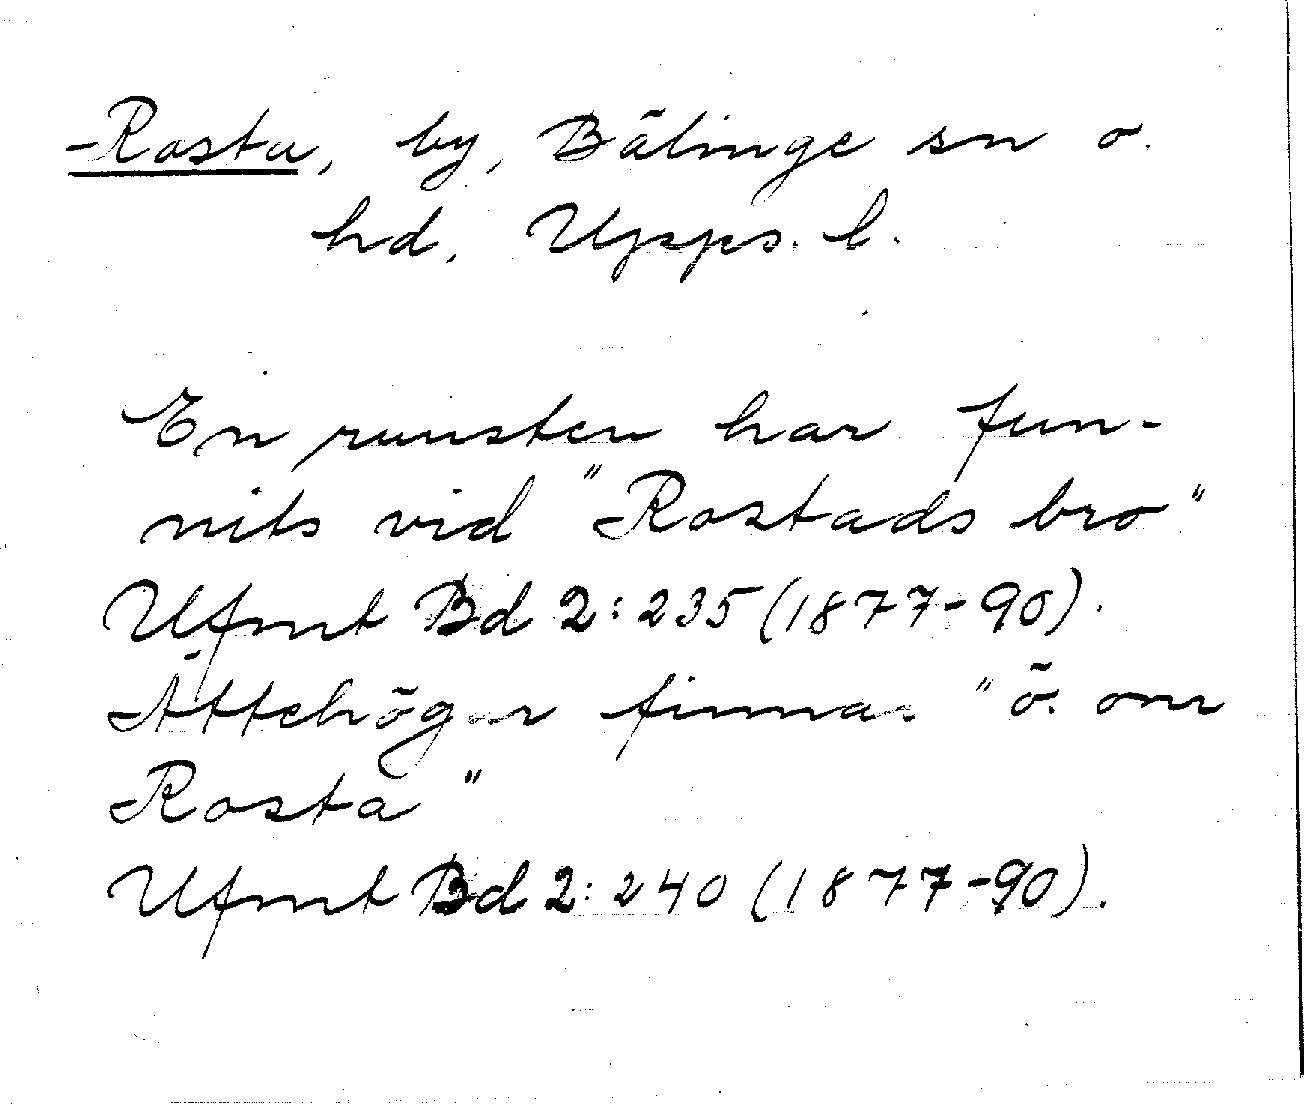 -Rosta, by, Bälinge sn o.
hd, Upps. l.
En runsten har fun-
nits vid "Rostads bro"
Ufmt Bd 2:235 (1877-90).
Ättehögar finnas "ö. om
Rosta"
Ufmt Bd 2:240 (1877-90).